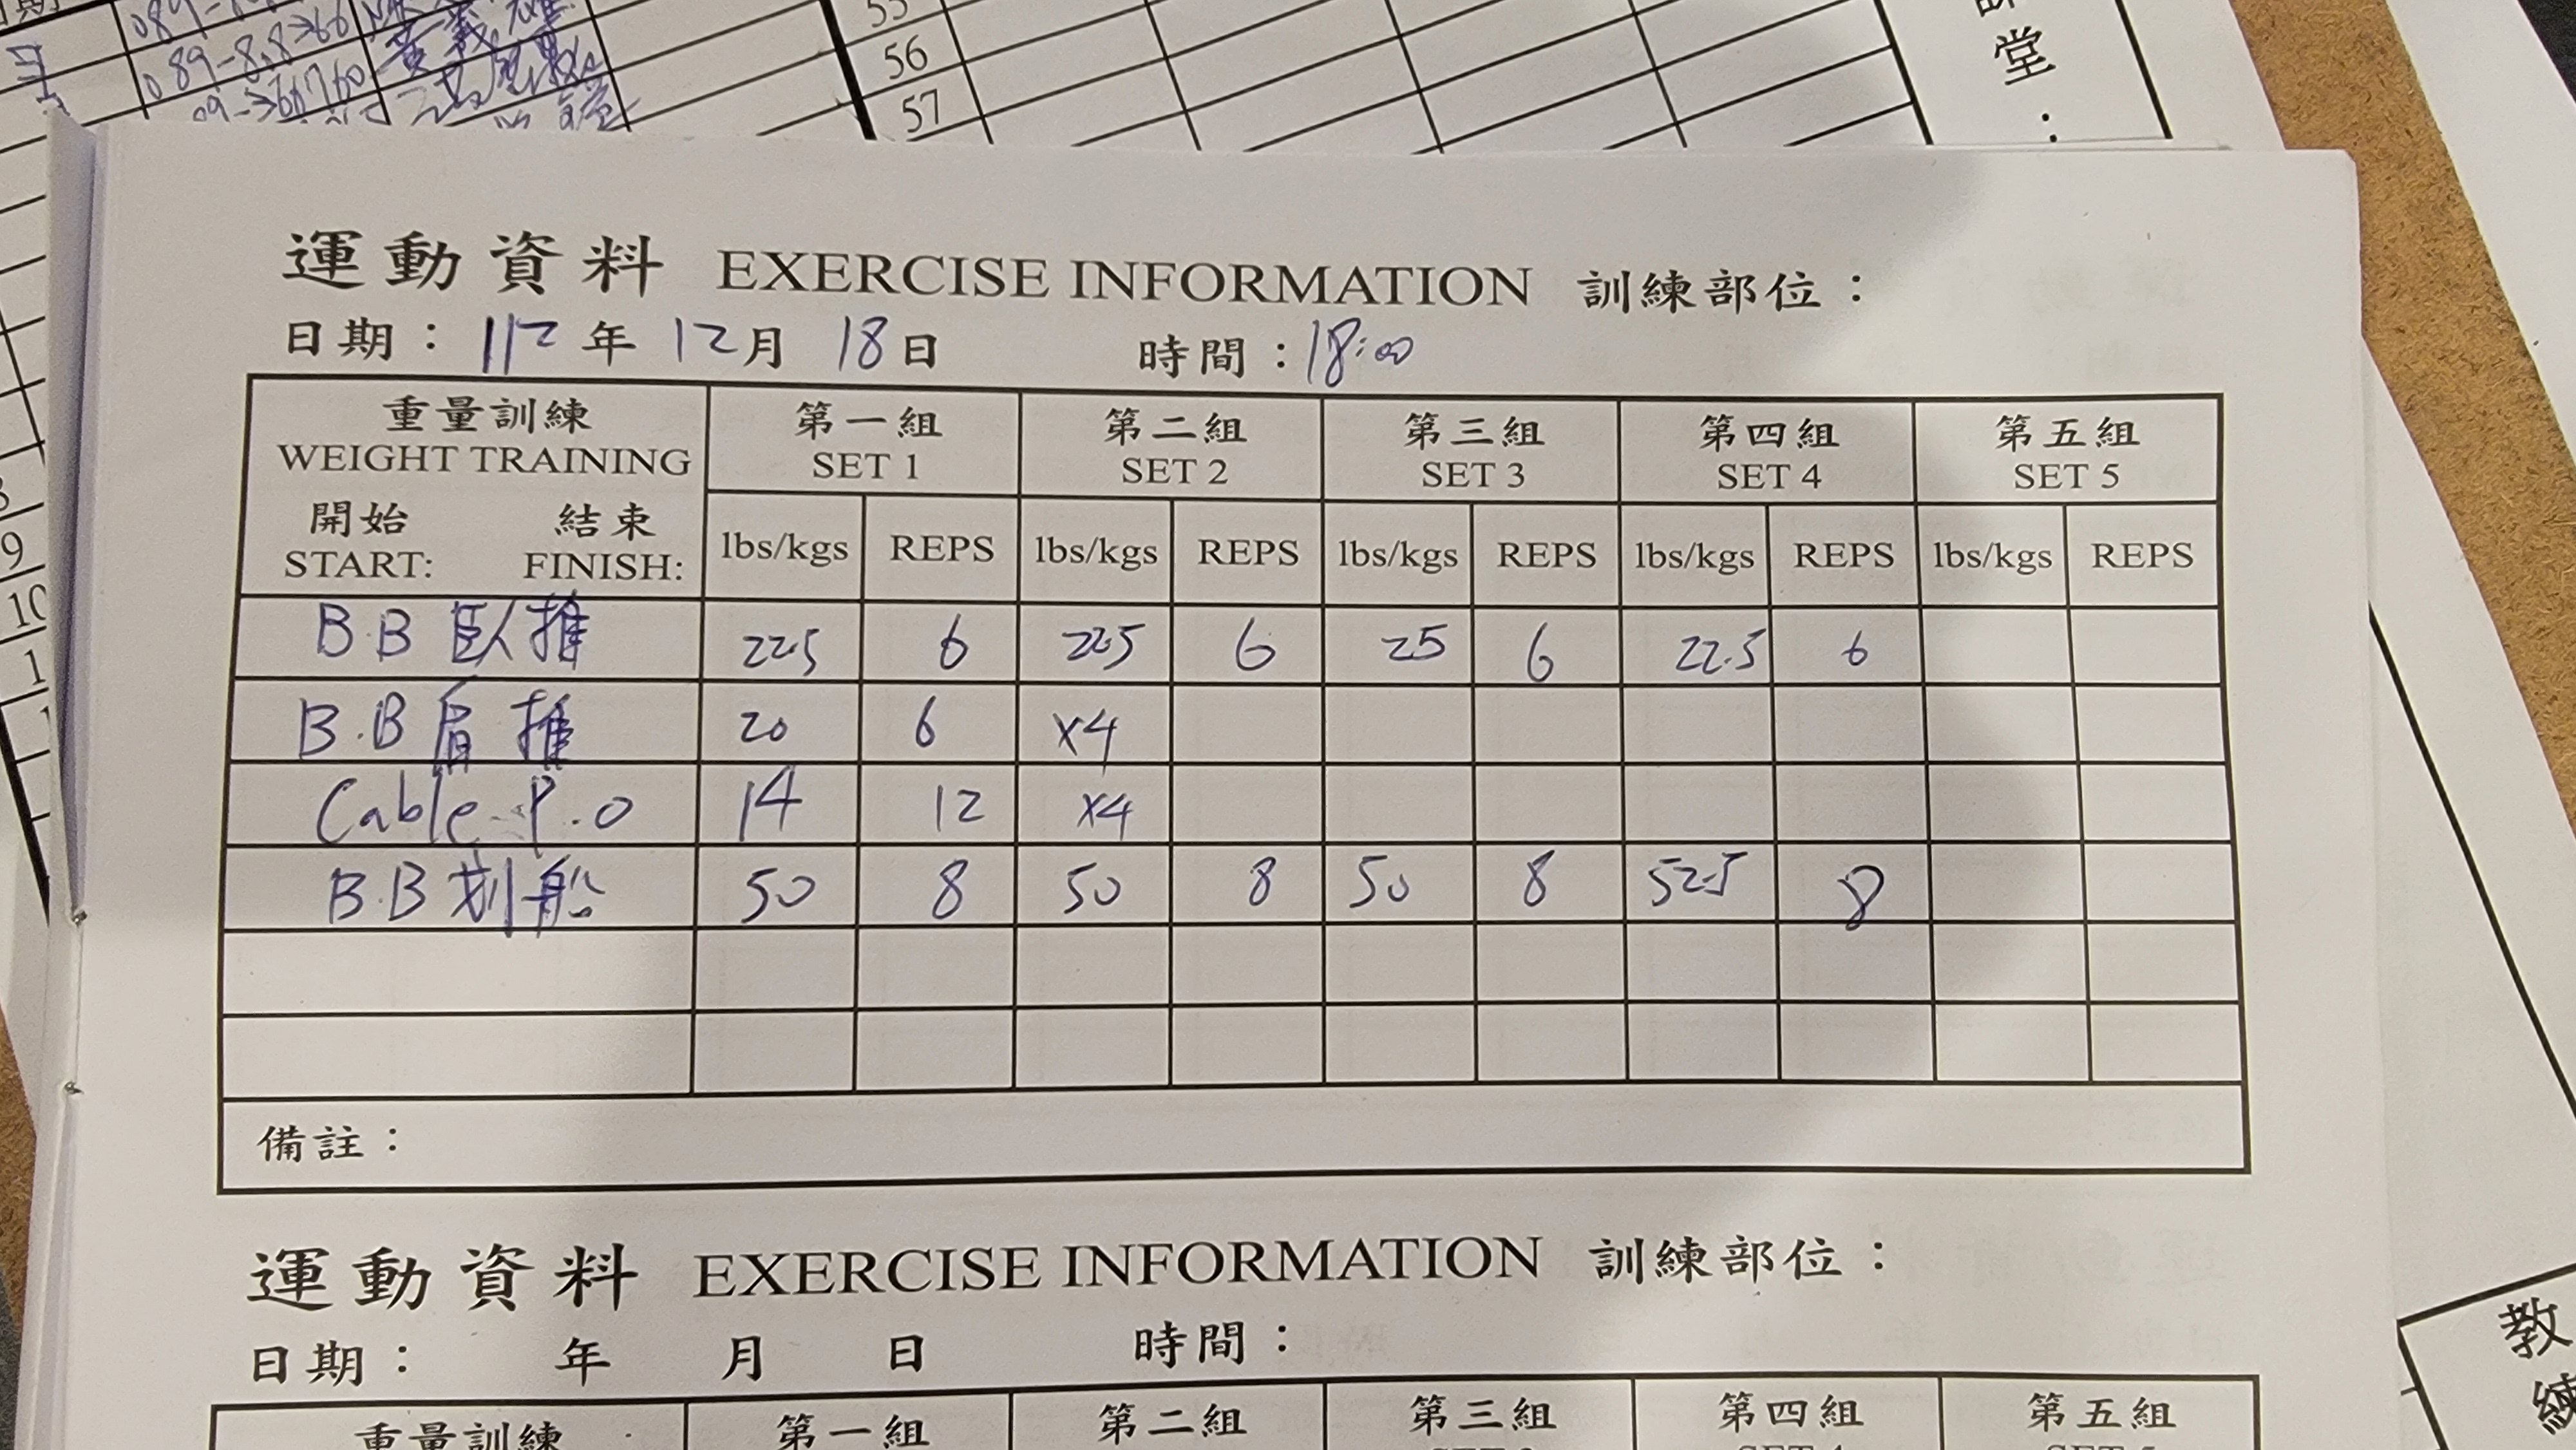 56
57
堂：
運動資料 EXERCISE INFORMATION 訓練部位：
日期：112年 12月 18日 時間：18:00
重量訓練 第一組 第二組 第三組 第四組 第五組
WEIGHT TRAINING SET 1 SET 2 SET 3 SET 4 SET 5
開始 結束
START: FINISH: lbs/kgs REPS lbs/kgs REPS lbs/kgs REPS lbs/kgs REPS lbs/kgs REPS
B.B 臥推 22.5 6 22.5 6 25 6 22.5 6
B.B 肩推 20 6 x4
Cable P.O 14 12 x4
B.B 划船 50 8 50 8 50 8 52.5 8
備註：
運動資料 EXERCISE INFORMATION 訓練部位：
日期： 年 月 日 時間：
重量訓練 第一組 第二組 第三組 第四組 第五組
9
10
教練